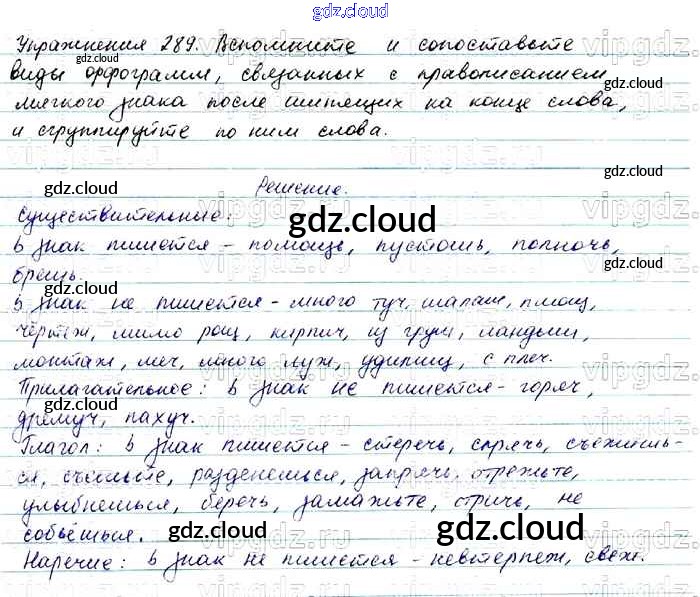 gdz.cloud
Упражнения 289. Вспомните и сопоставьте
виды орфограмм, связанных с правописанием
мягкого знака после шипящих на конце слова,
и сгруппируйте по ним слова.
gdz.cloud Решение. gdz.cloud
Существительные: gdz.cloud
ь знак пишется - помощь, пустошь, полночь,
брешь. gdz.cloud gdz.cloud
ь знак не пишется - много туч, шалаш, плющ,
чертёж, мимо рощ, кирпич, из груш, ландыш,
монтаж, меч, много луж, удилищ, с плеч.
Прилагательное: ь знак не пишется - горяч,
дремуч, пахуч. gdz.cloud gdz.cloud
Глагол: ь знак пишется - стеречь, спрячь, съежишь-
ся, съешьте, разденешься, запрячь, отрежьте,
улыбнешься, беречь, замажьте, стричь, не
собьёшься. gdz.cloud gdz.cloud gdz.cloud
Наречие: ь знак не пишется - невтерпеж, свеж.
vipgdz.ru